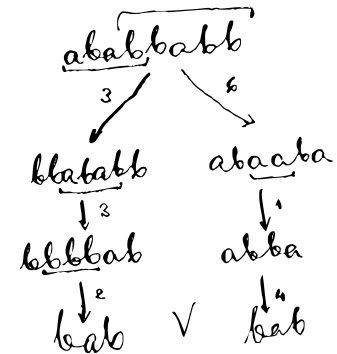 ababbabb
3 6
bbababb abaaba
3 1
bbbbab abba
2 4
bab V bab